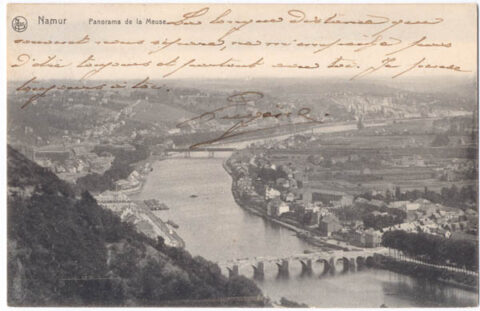 Namur Panorama de la Meuse.
La longue distance qui
souvent nous sépare, ne m'empêche pas
d'être toujours et partout avec toi. Je pense
toujours à toi.